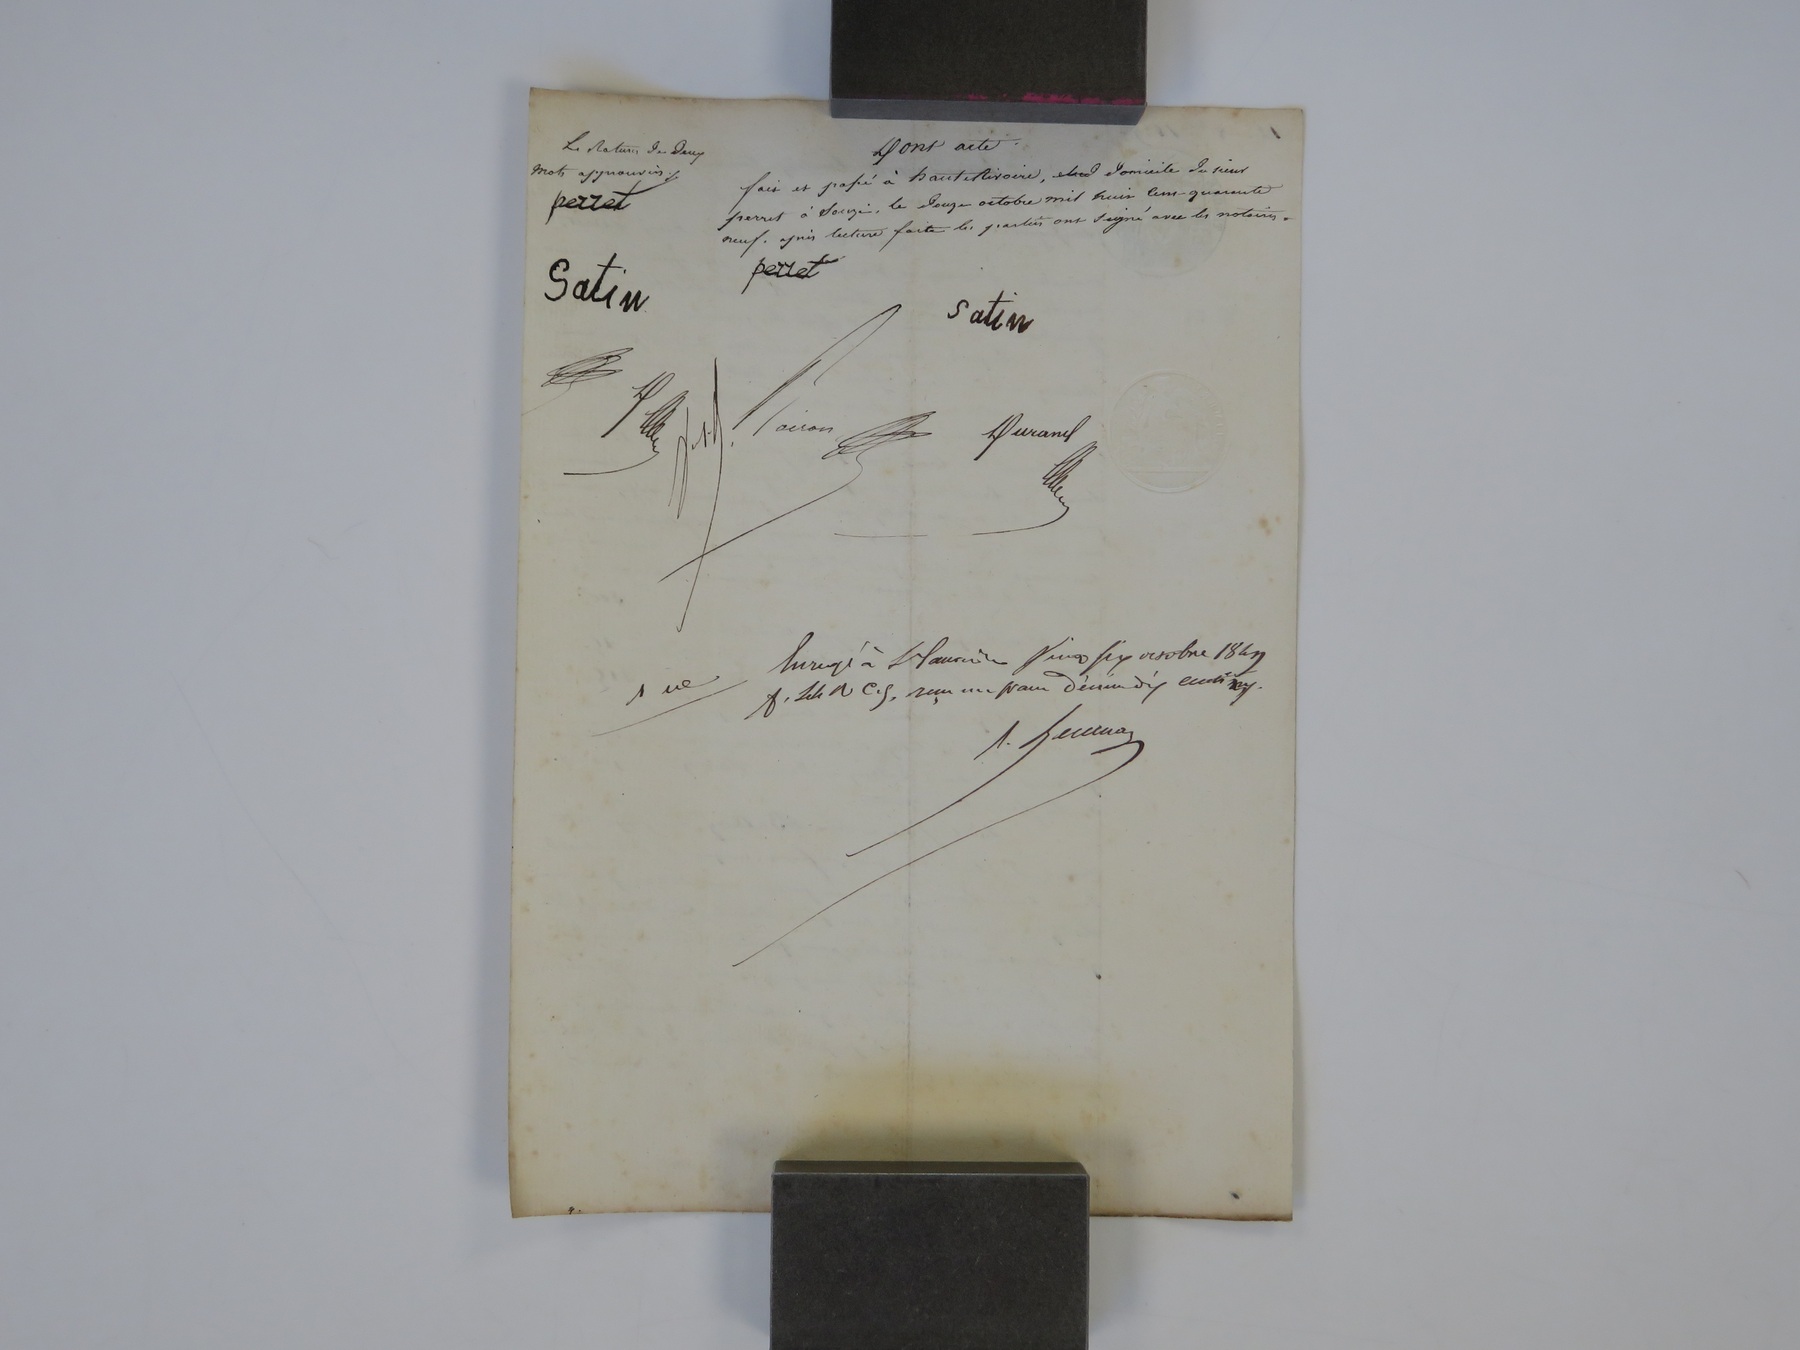 La Rature de Deux
mots approuvés
perret
Satin
Dont acte.
fait et passé à hauterivoire, domicile du sieur
perret à Souzi, le Douze octobre mil huit cent quarante
neuf. après lecture faite les parties ont signé avec les notaires.
perret
Satin
Durand
Enregé à St Laurent Vingt six octobre 1849
f. C. 5, reçu un franc Décime dix centimes.